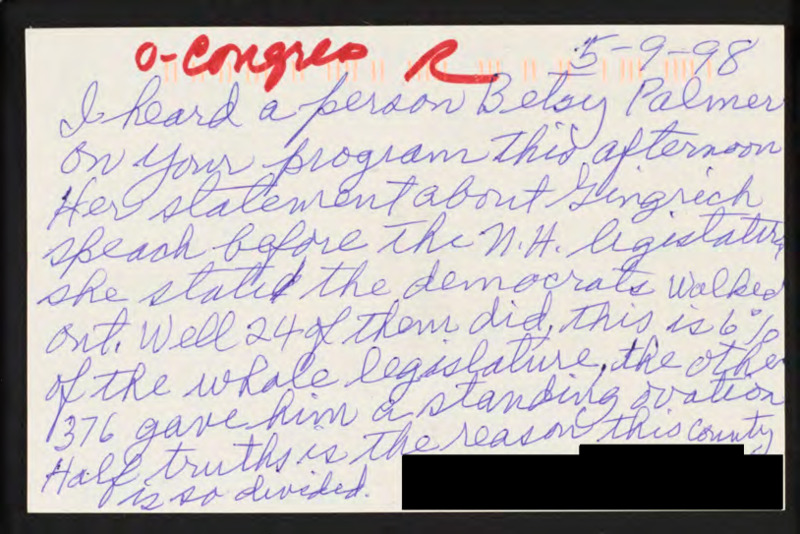 O-Congres R 5-9-98
I heard a person Betsy Palmer
on your program this afternoon
Her statement about Gingrich
speach before the N.H. legistature
she stated the democrats walked
out. Well 24 of them did, this is 6%
of the whole legaslature, the other
376 gave him a standing ovation
Half truths is the reason this county
is so divided.